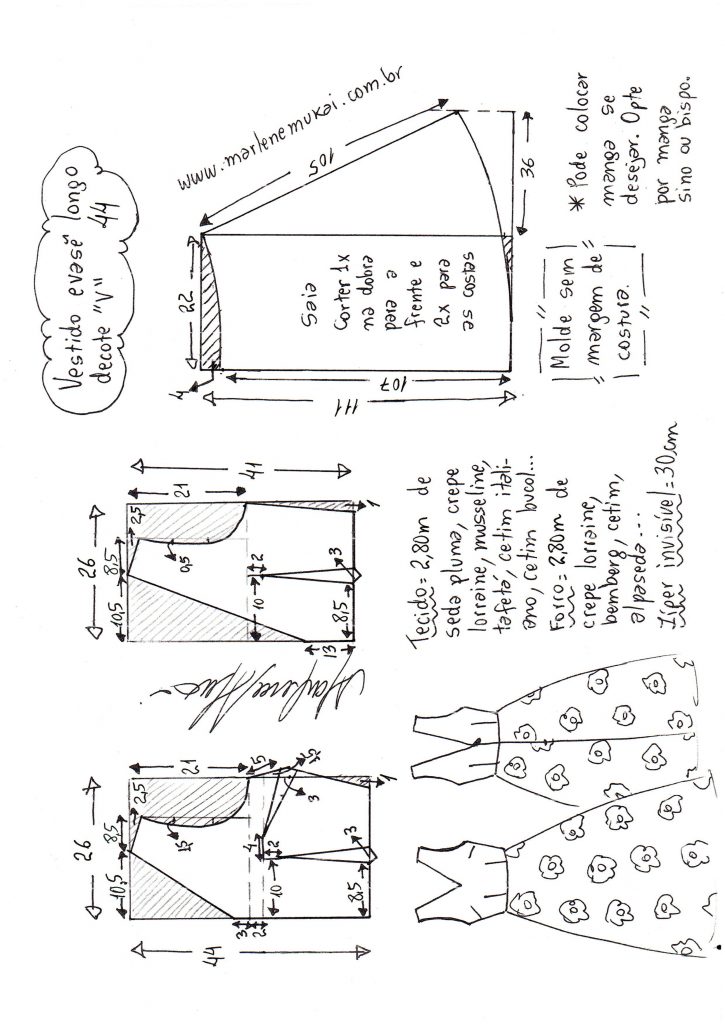 Vestido evasê longo
44
decote "V"
www.marlenemukai.com.br
105
36
22
4
107
111
Saia
Corter 1x
na dobra
para a
frente e
2x para
as costas
* Pode colocar
manga se
desejar. Opte
por manga
sino ou bispo.
Molde sem
margem de
costura.
26
10,5
8,5
2,5
21
41
0,5
2
10
3
8,5
13
1
26
10,5
8,5
2,5
21
44
1,5
5
3
4
2
10
3
2
3
8,5
1
Tecido = 2,80m de
seda pluma, crepe
lorraine, musseline,
tafetá, cetim itali-
ano, cetim bucol...
Forro = 2,80m de
crepe lorraine,
bemberg, cetim,
alpaseda...
Zíper invisível = 30cm